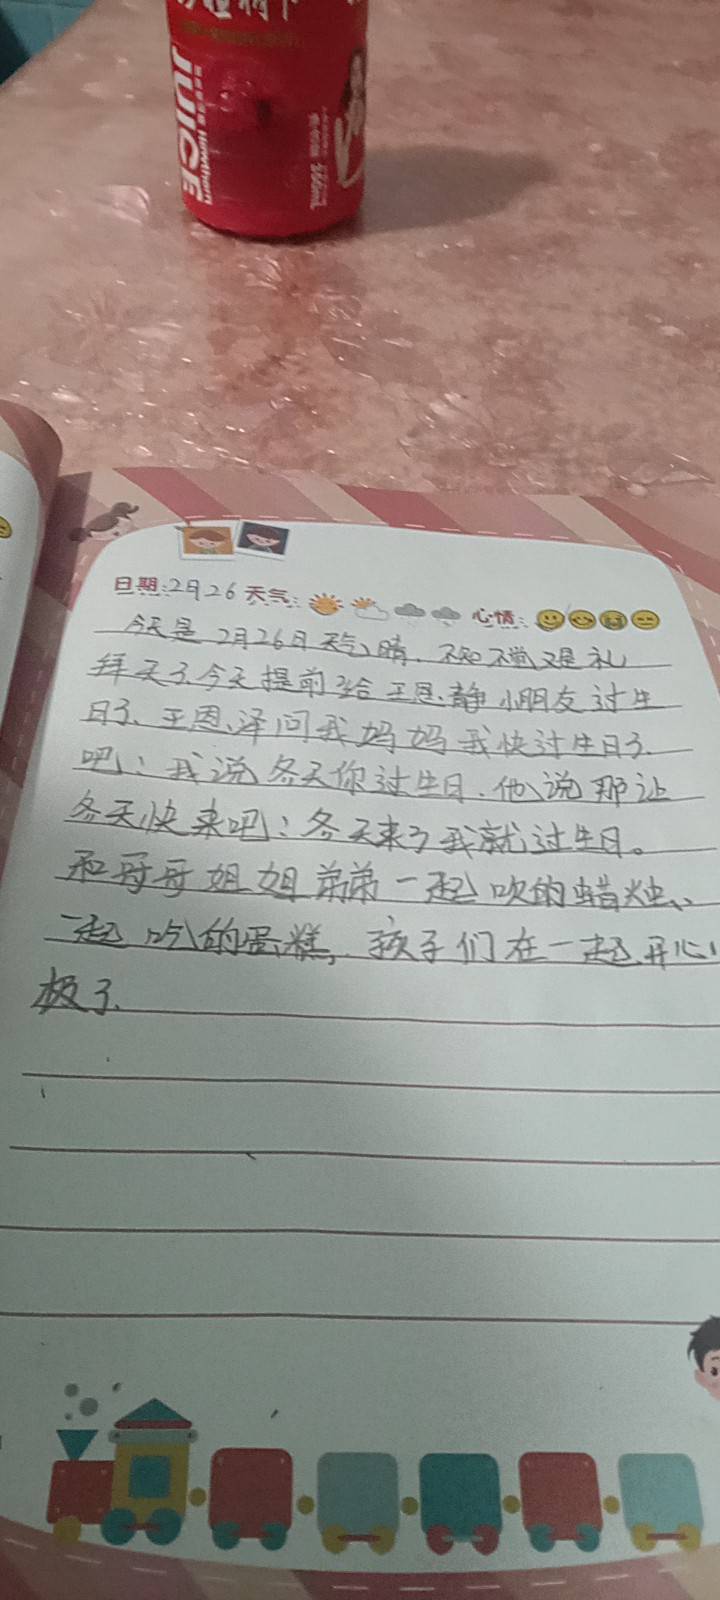 JUICE
Hawthorn
日期:2月26 天气: 心情:
今天是2月26日天气晴.不知不觉又是礼
拜天了.今天提前给王恩静小朋友过生
日了、王恩泽问我妈妈我快过生日了.
吧:我说冬天你过生日.他说那让
冬天快来吧:冬天来了我就过生日。
和哥哥姐姐弟弟一起吹的蜡烛、
一起吃的蛋糕,孩子们在一起开心
极了.